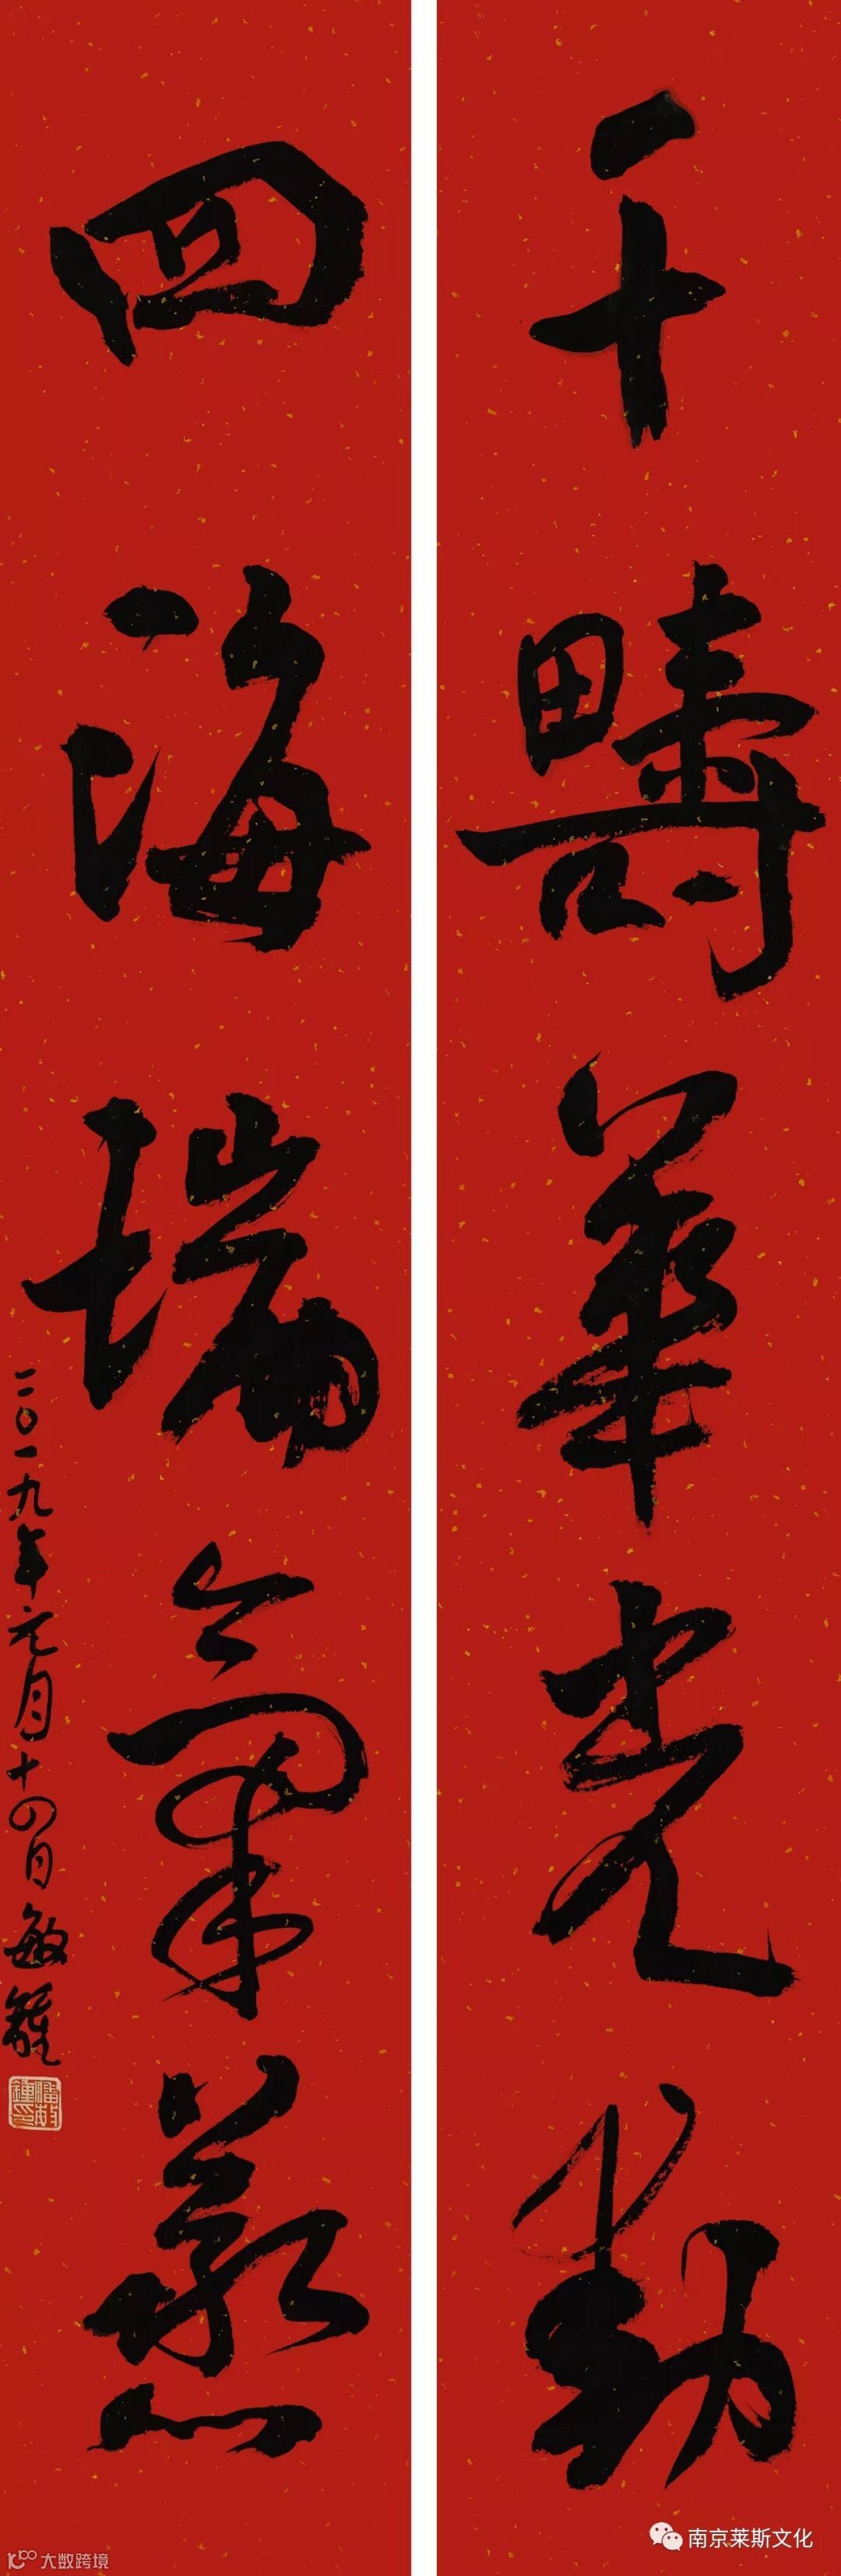 千畴華光動
四海瑞氣蒸
二〇一九年元月十四日敏鍾
南京莱斯文化
大数跨境